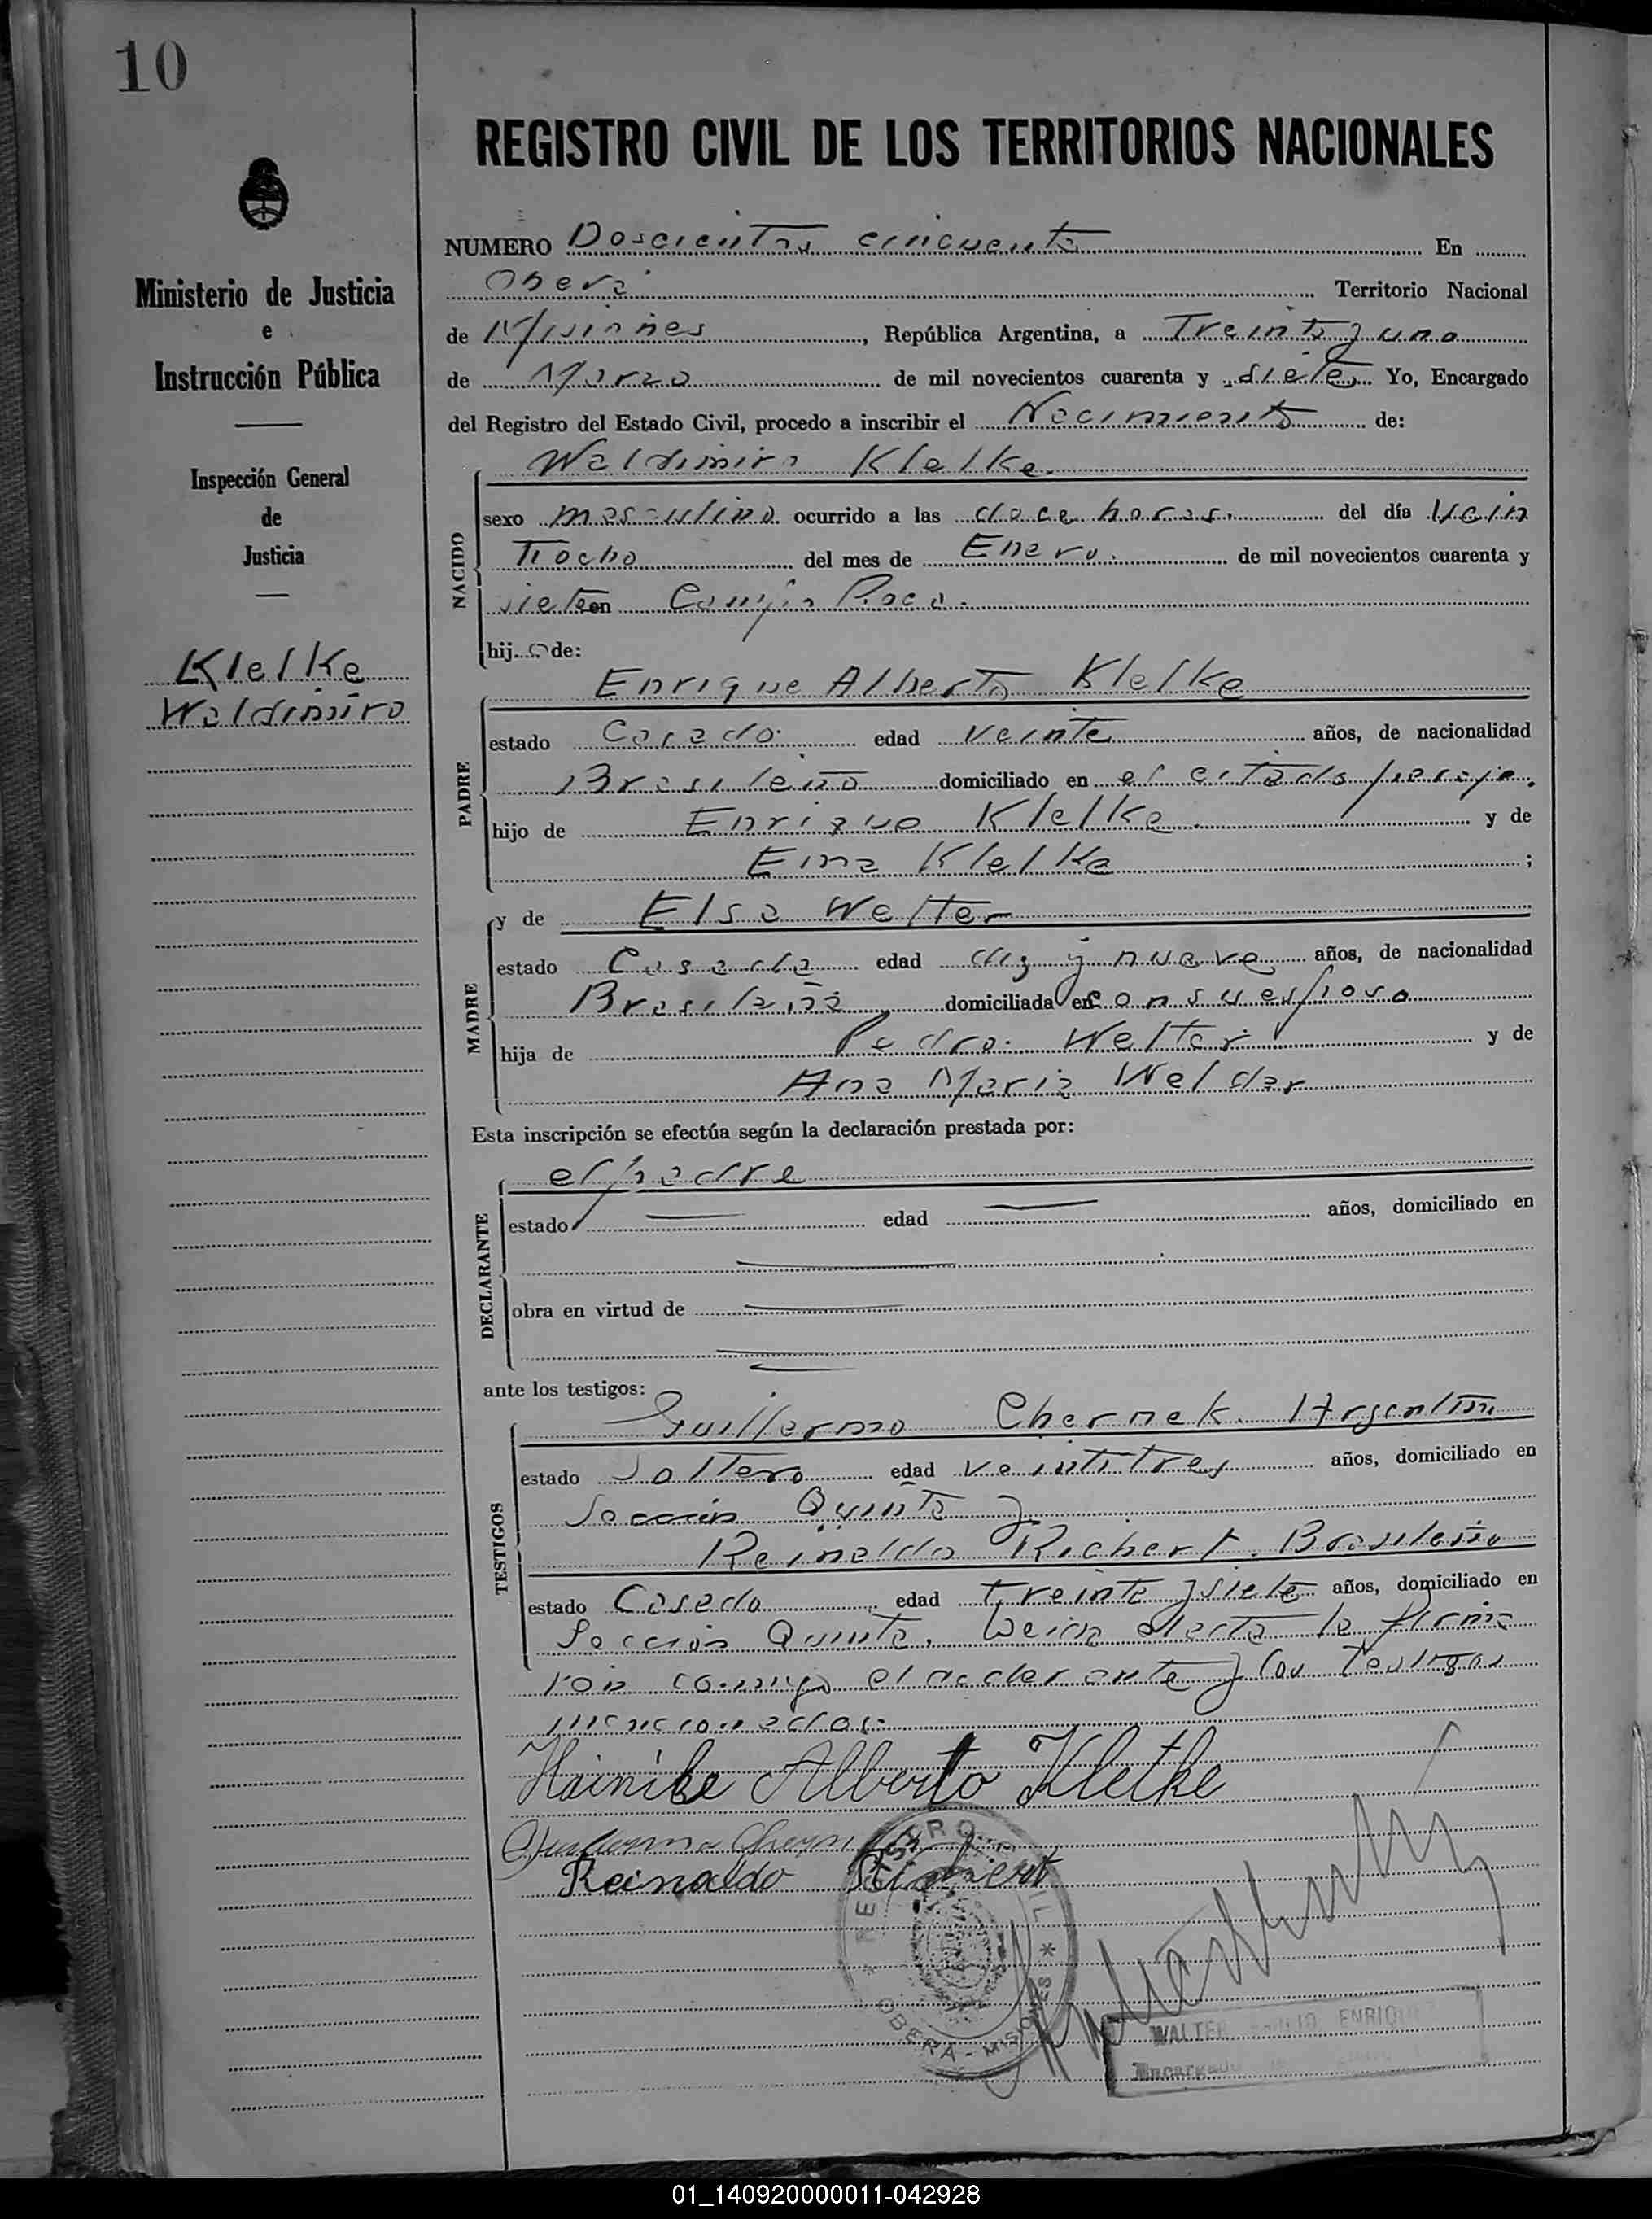 10
REGISTRO CIVIL DE LOS TERRITORIOS NACIONALES
Ministerio de Justicia
e
Instrucción Pública
Inspección General
de
Justicia
Klelke
Waldimiro
NUMERO Doscientos cincuenta En
Oberá Territorio Nacional
de Misiones, República Argentina, a Treinta y uno
de Marzo de mil novecientos cuarenta y siete Yo, Encargado
del Registro del Estado Civil, procedo a inscribir el Nacimiento de:
NACIDO
Waldimiro Klelke.
sexo masculino ocurrido a las doce horas. del día Vein
Tiocho del mes de Enero. de mil novecientos cuarenta y
siete en Campo Roca.
hijo de:
PADRE
Enrique Alberto Klelke
estado Casado edad veinte años, de nacionalidad
Brasileño domiciliado en el citado paraje.
hijo de Enrique Klelke. y de
Ema Klelke ;
MADRE
y de Elsa Welter
estado Casada edad diez y nueve años, de nacionalidad
Brasileña domiciliada en con su esposo
hija de Pedro Welter y de
Ana Maria Weldar
Esta inscripción se efectúa según la declaración prestada por:
DECLARANTE
el padre
estado edad años, domiciliado en
obra en virtud de
ante los testigos:
TESTIGOS
Guillermo Chernek. Argentino
estado Soltero edad veintitres años, domiciliado en
Sección Quinta y
Reinaldo Richert. Brasileño
estado Casado edad treinta y siete años, domiciliado en
Sección Quinta. Leida el acta la firma
ron conmigo el declarante y los Testigos
mencionados.
Hainike Alberto Kletke
Reinaldo Richert
REGISTRO CIVIL
OBERA - MISIONES
WALTER ENRIQUE
Encargado
01_140920000011-042928